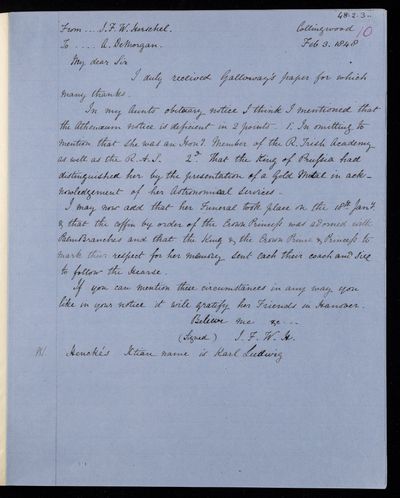 48.2.3.
From ... J. F. W. Herschel. Collingwood
10
To ..... A. DeMorgan. Feb 3. 1848
My dear Sir
I duly received Galloway's paper for which
many thanks.
In my Aunts obituary notice I think I mentioned that
the Athenaeum notice is deficient in 2 points. 1. In omitting to
mention that she was an Hony. Member of the R. Irish Academy
as well as the R. A. S. 2d That the King of Prussia had
distinguished her by the presentation of a Gold Medal in ack-
nowledgement of her Astronomical Services.
I may now add that her Funeral took place on the 18th Jany.
& that the coffin by order of the Crown Princess was adorned with
Palm Branches and that the King & the Crown Prince & Princess to
mark their respect for her memory sent each their coach and Six
to follow the Hearse.
If you can mention these circumstances in any way you
like in your notice it will gratify her Friends in Hanover.
Believe me &c ...
(Signed) J. F. W. H.
Hencke's Xtian name is Karl Ludwig